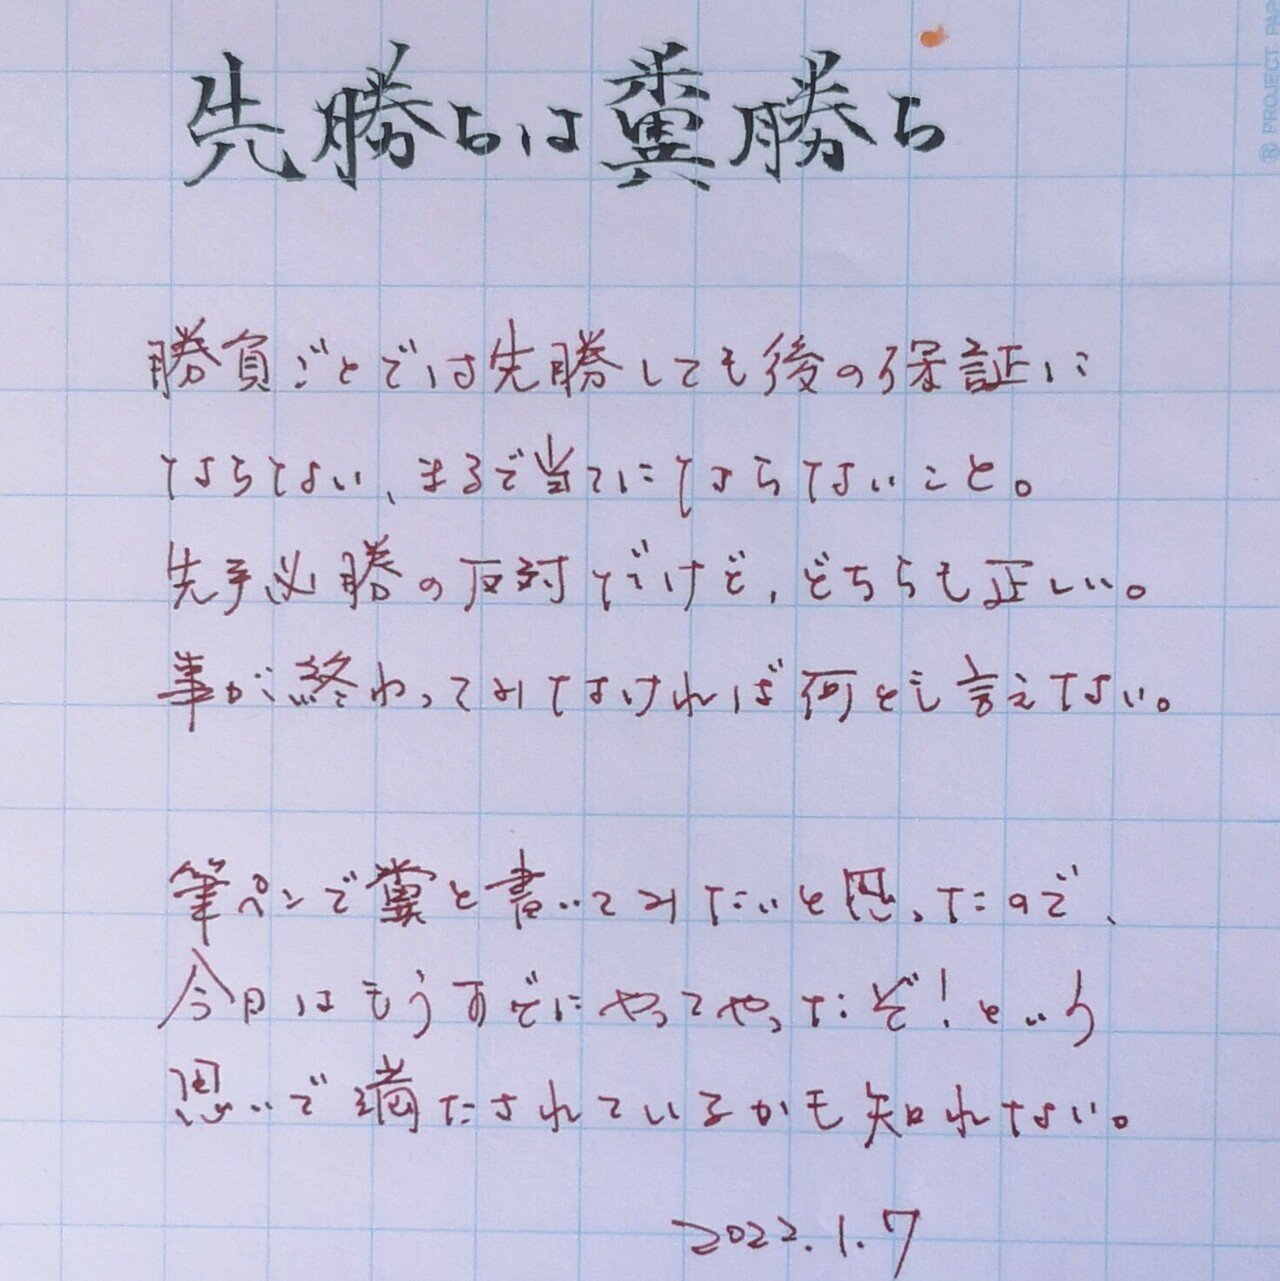 先勝ちは糞勝ち
勝負ごとでは先勝しても後の保証に
ならない、まるで当てにならないこと。
先手必勝の反対だけど、どちらも正しい。
事が終わってみなければ何とも言えない。
筆ペンで糞と書いてみたいと思ったので、
今日はもうすでにやってやったぞ!という
思いで満たされているかも知れない。
2022.1.7
® PROJECT PAP